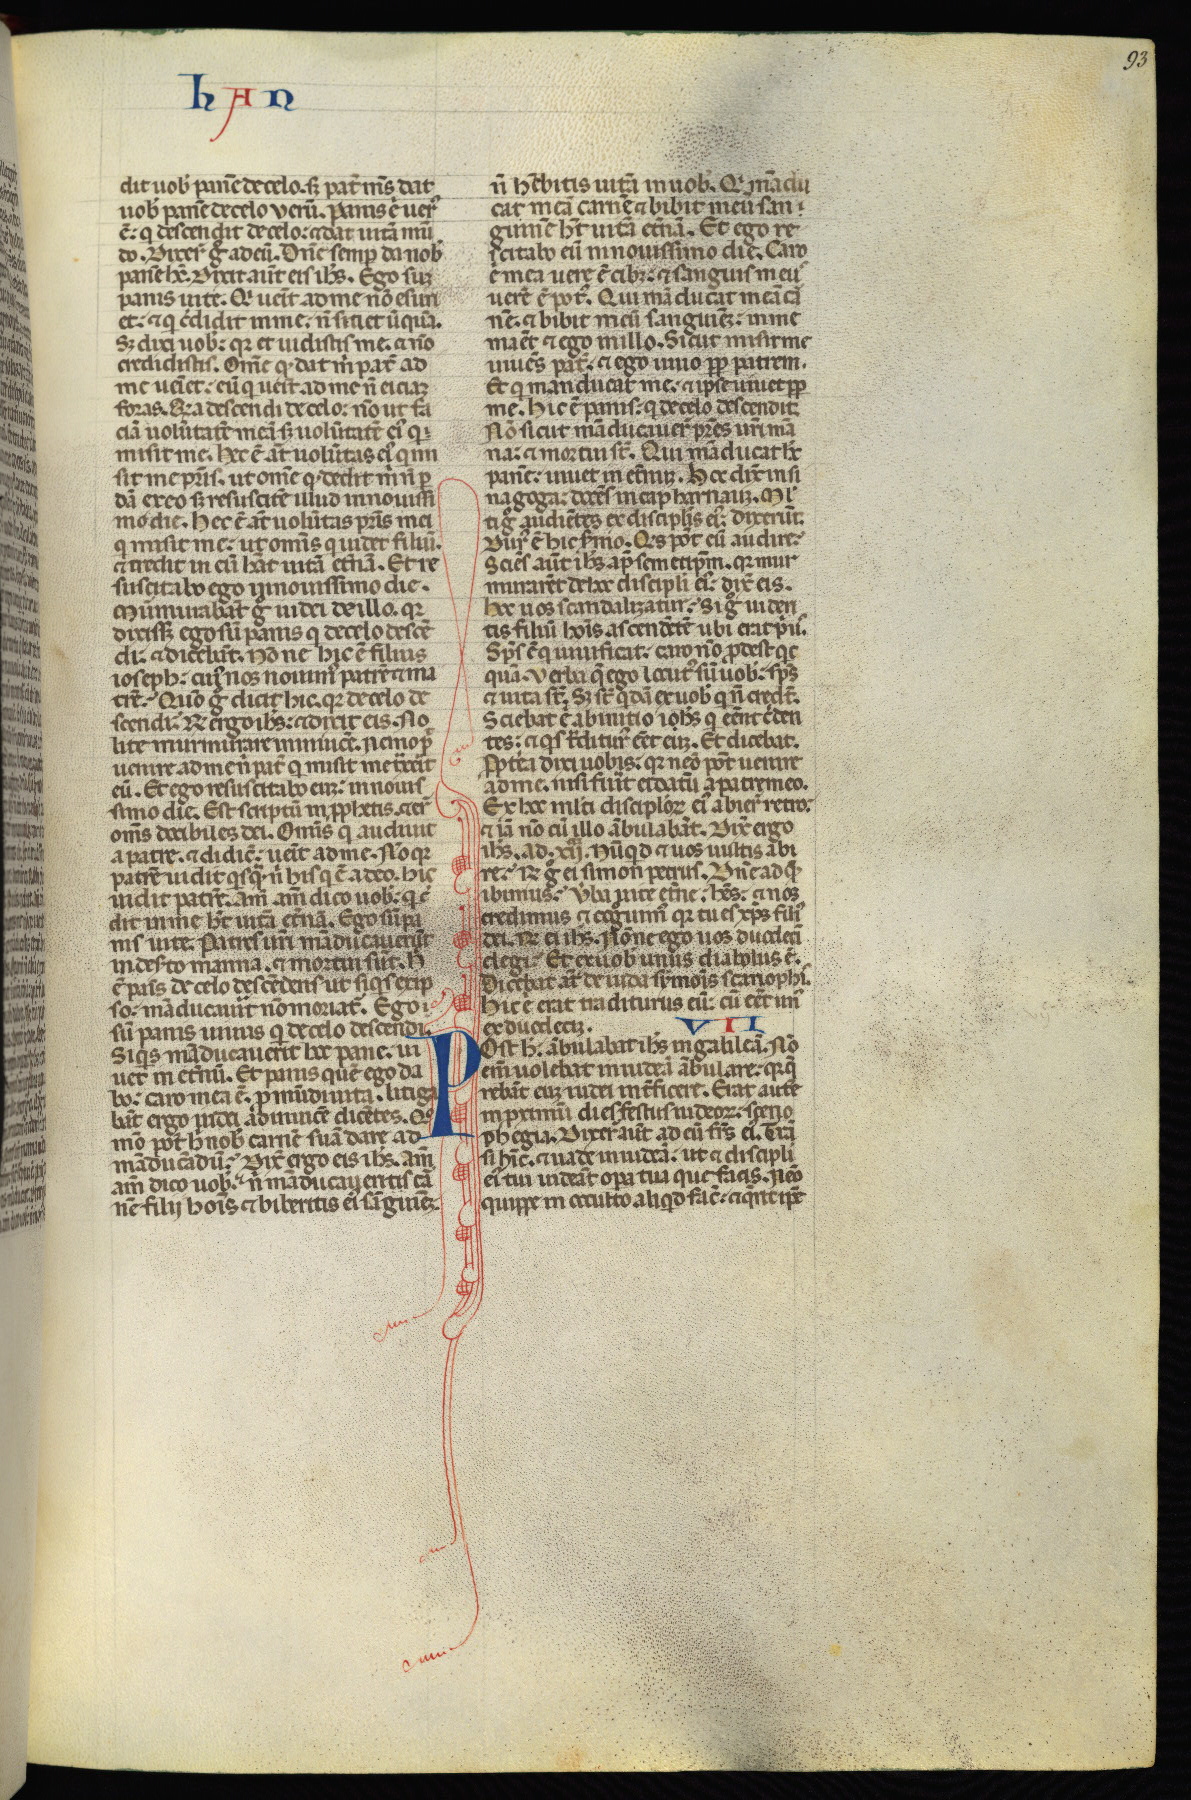 93
han
dit uob̾ panē de celo. sꝫ pat̾ m̅s dat
uob̾ panē de celo verū. Panis ē uer̾
ē: q̇ descendit de celo: ⁊ dat uitā mū
do. Dixer̄t g̊ ad eū. Dn̄e semp̲ da nob̾
panē hc̄. Dixit aūt eis ih̄s. Ego suꝫ
panis uite. Q̇ uēit ad me nō esuri
et: ⁊ q̇ c̄didit in me: n̄ sitiet ūquā.
Sꝫ dixi uob̾: qr et uidistis me: ⁊ nō
credidistis. Om̄e q̇ dat m̄ pat̾ ad
me ueīet: eū q̇ uēit ad me n̄ eiciaꝫ
foras. Q̇a descendi de celo: nō ut fa
ciā uolūtatē meā sꝫ uolūtatē ei̾ q̇
misit me. Hec ē āt uolūtas ei̾ q̇ mi
sit me pr̄is. ut om̄e q̇ dedit m̄ n̄ p̲
dā ex eo sꝫ resuscitē illud in nouissi
mo die. Hec ē āt uolūtas pr̄is mei
q̇ misit me: ut om̄is q̇ uidet filiū.
⁊ credit in eū hāt uitā et̄nā. Et re
suscitabo ego ī nouissimo die.
Murmurabāt g̊ iudei de illo. qr
dixissꝫ ego sū panis q̇ de celo descē
di. ⁊ dicebāt. Nonne hic ē filius
ioseph: cui̾ nos nouim̾ patrē ⁊ ma
trē. Quō g̊ dicit hic. qr de celo de
scendi. R̄ ergo ih̄s: ⁊ dixit eis. No
lite murmurare in inuicē. nemo p̄t
uenire ad me n̄ pat̾ q̇ misit me traxit
eū. Et ego resuscitabo eūꝫ in nouis
simo die. Est scriptū in pꝓhetis. ⁊ er̄t
om̄s docibiles dei. Om̄is q̇ audiuit
a patre. ⁊ didic̄: uēit ad me. No qr
patrē uidit q̇sq̄ n̄ his q̇ ē a deo. hic
uidit patrē. Am̄ am̄ dico uob̾: q̇ c̄
dit in me h̄t uitā et̄nā. Ego sū pa
nis uite. Patres ur̄i māducauerūt
in des̄to manna. ⁊ mortui sūt. H̄
ē pais de celo descēdens ut siq̇s ex ip
so: māducauīt nō moriat̾. Ego
sū panis uiuus q̇ de celo descendi.
Siq̇s māducauerit hc̄ panē. ui
uet in et̄nū. Et panis quē ego da
bo: caro mea ē. p̲ mūdi uita. Litiga
bāt ergo iudei ad inuicē dicētes. Q̊
mō pōt h̄ nob̾ carnē suā dare ad
māducādū. Dix̄ ergo eis ih̄s. Am̄
am̄ dico uob̾: n̄ māducaueritis cā
nē filij hōis ⁊ biberitis ei̾ sāguinē:
n̄ hēbitis uitā in uob̾. Q̇ mādu
cat meā carnē ⁊ bibit meū san
guinē h̄t uitā et̄nā. Et ego re
s̄citabo eū in nouissimo die. Caro
ē mea uere ē cib̾: ⁊ sanguis meu̾
uerē ē pot̾. Qui mā ducat meā cā
nē: ⁊ bibit meū sanguinēꝫ: in me
māet ⁊ ego in illo. Sicut misit me
uiuēs pat̾: ⁊ ego uiuo ꝓp̲ patrem.
Et q̇ manducat me: ⁊ ipse uiuet ꝓp̲
me. Hic ē panis: q̇ de celo descendit.
Nō sicut māducauer̄t pr̄es ur̄i mā
na: ⁊ mortui st̄. Qui māducat hc̄
panē: uiuet in et̄nuꝫ. Hec dix̄ in si
nagoga: docēs in capharnauꝫ. Ml̾
ti g̊ audiētes ex discipl̄is ei̾: dixerūt.
Dur̾ ē hic s̄mo. Q̇s pōt eū audire:
Sciēs aūt ih̄s ap̄ semetip̄m. qr mur
murarēt de hc̄ discipli ei̾: dix̄ eis.
hc̄ uos scandalizat. Si g̊ uiden
tis filiū hōis ascendētē ubi erat pri̾.
Sp̄s ē q̇ uiuificat: caro nō ꝓdest q̇c
quā. Verba q̄ ego locut̾ sū uob̾: sp̄s
⁊ uita st̄. Sꝫ st̄ q̇dā ex uob̾ q̇ n̄ credt̄.
Sciebat ē ab initio ih̄s q̇ eēnt c̄den
tes: ⁊ q̇s t̄diturꝰ eēt euꝫ. Et dicebat.
Ꝓpt̾ea dixi uobis: qr nēo pōt uenire
ad me. nisi fūit ei datū a patre meo.
Ex hc̄ ml̾ti disciploꝝ ei̾ abier̄t retro:
⁊ iā nō cū illo ābulabāt. Dix̄ ergo
ih̄s. ad .xij. Nūq̇d ⁊ uos uultis abi
re. R̄ g̊ ei simon petrus. Dn̄e ad q̄
ibimus: Vb̾a uite et̄ne: hēs: ⁊ nos
credimus ⁊ cōgnim̾ qr tu es xp̄s fili̾
dei. R̄ ei ih̄s. Nōne ego uos duodecī
elegi: Et ex uob̾ unus diabolus ē.
Dicebat āt de iuda symōis scarioph̄.
Hic ē erat traditurus eū: cū eēt un̾
ex duodeciꝫ.
VII
Post h̄. ābulabat ih̄s in galileā. Nō
eī uolebat in iudeā ābulare: qr q̄
rebāt euꝫ iudei int̄ficere. Erat autē
in proximū dies festus iudeoꝝ. sceno
phegia. Dixer̄t aūt ad eū fr̄s ei̾. Trā
si hīc. ⁊ uade in iudeā: ut ⁊ discipli
ei̾ tui uideāt opa tua que facis. Nēo
quippe in occulto aliq̇d fac̄: ⁊ q̄rit ip̄e